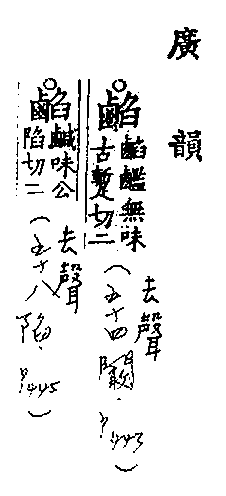 廣韻
無味
古暫切二
去聲
(五十四闞. P443)
鹹味公
陷切二
去聲
(五十八陷. P445)